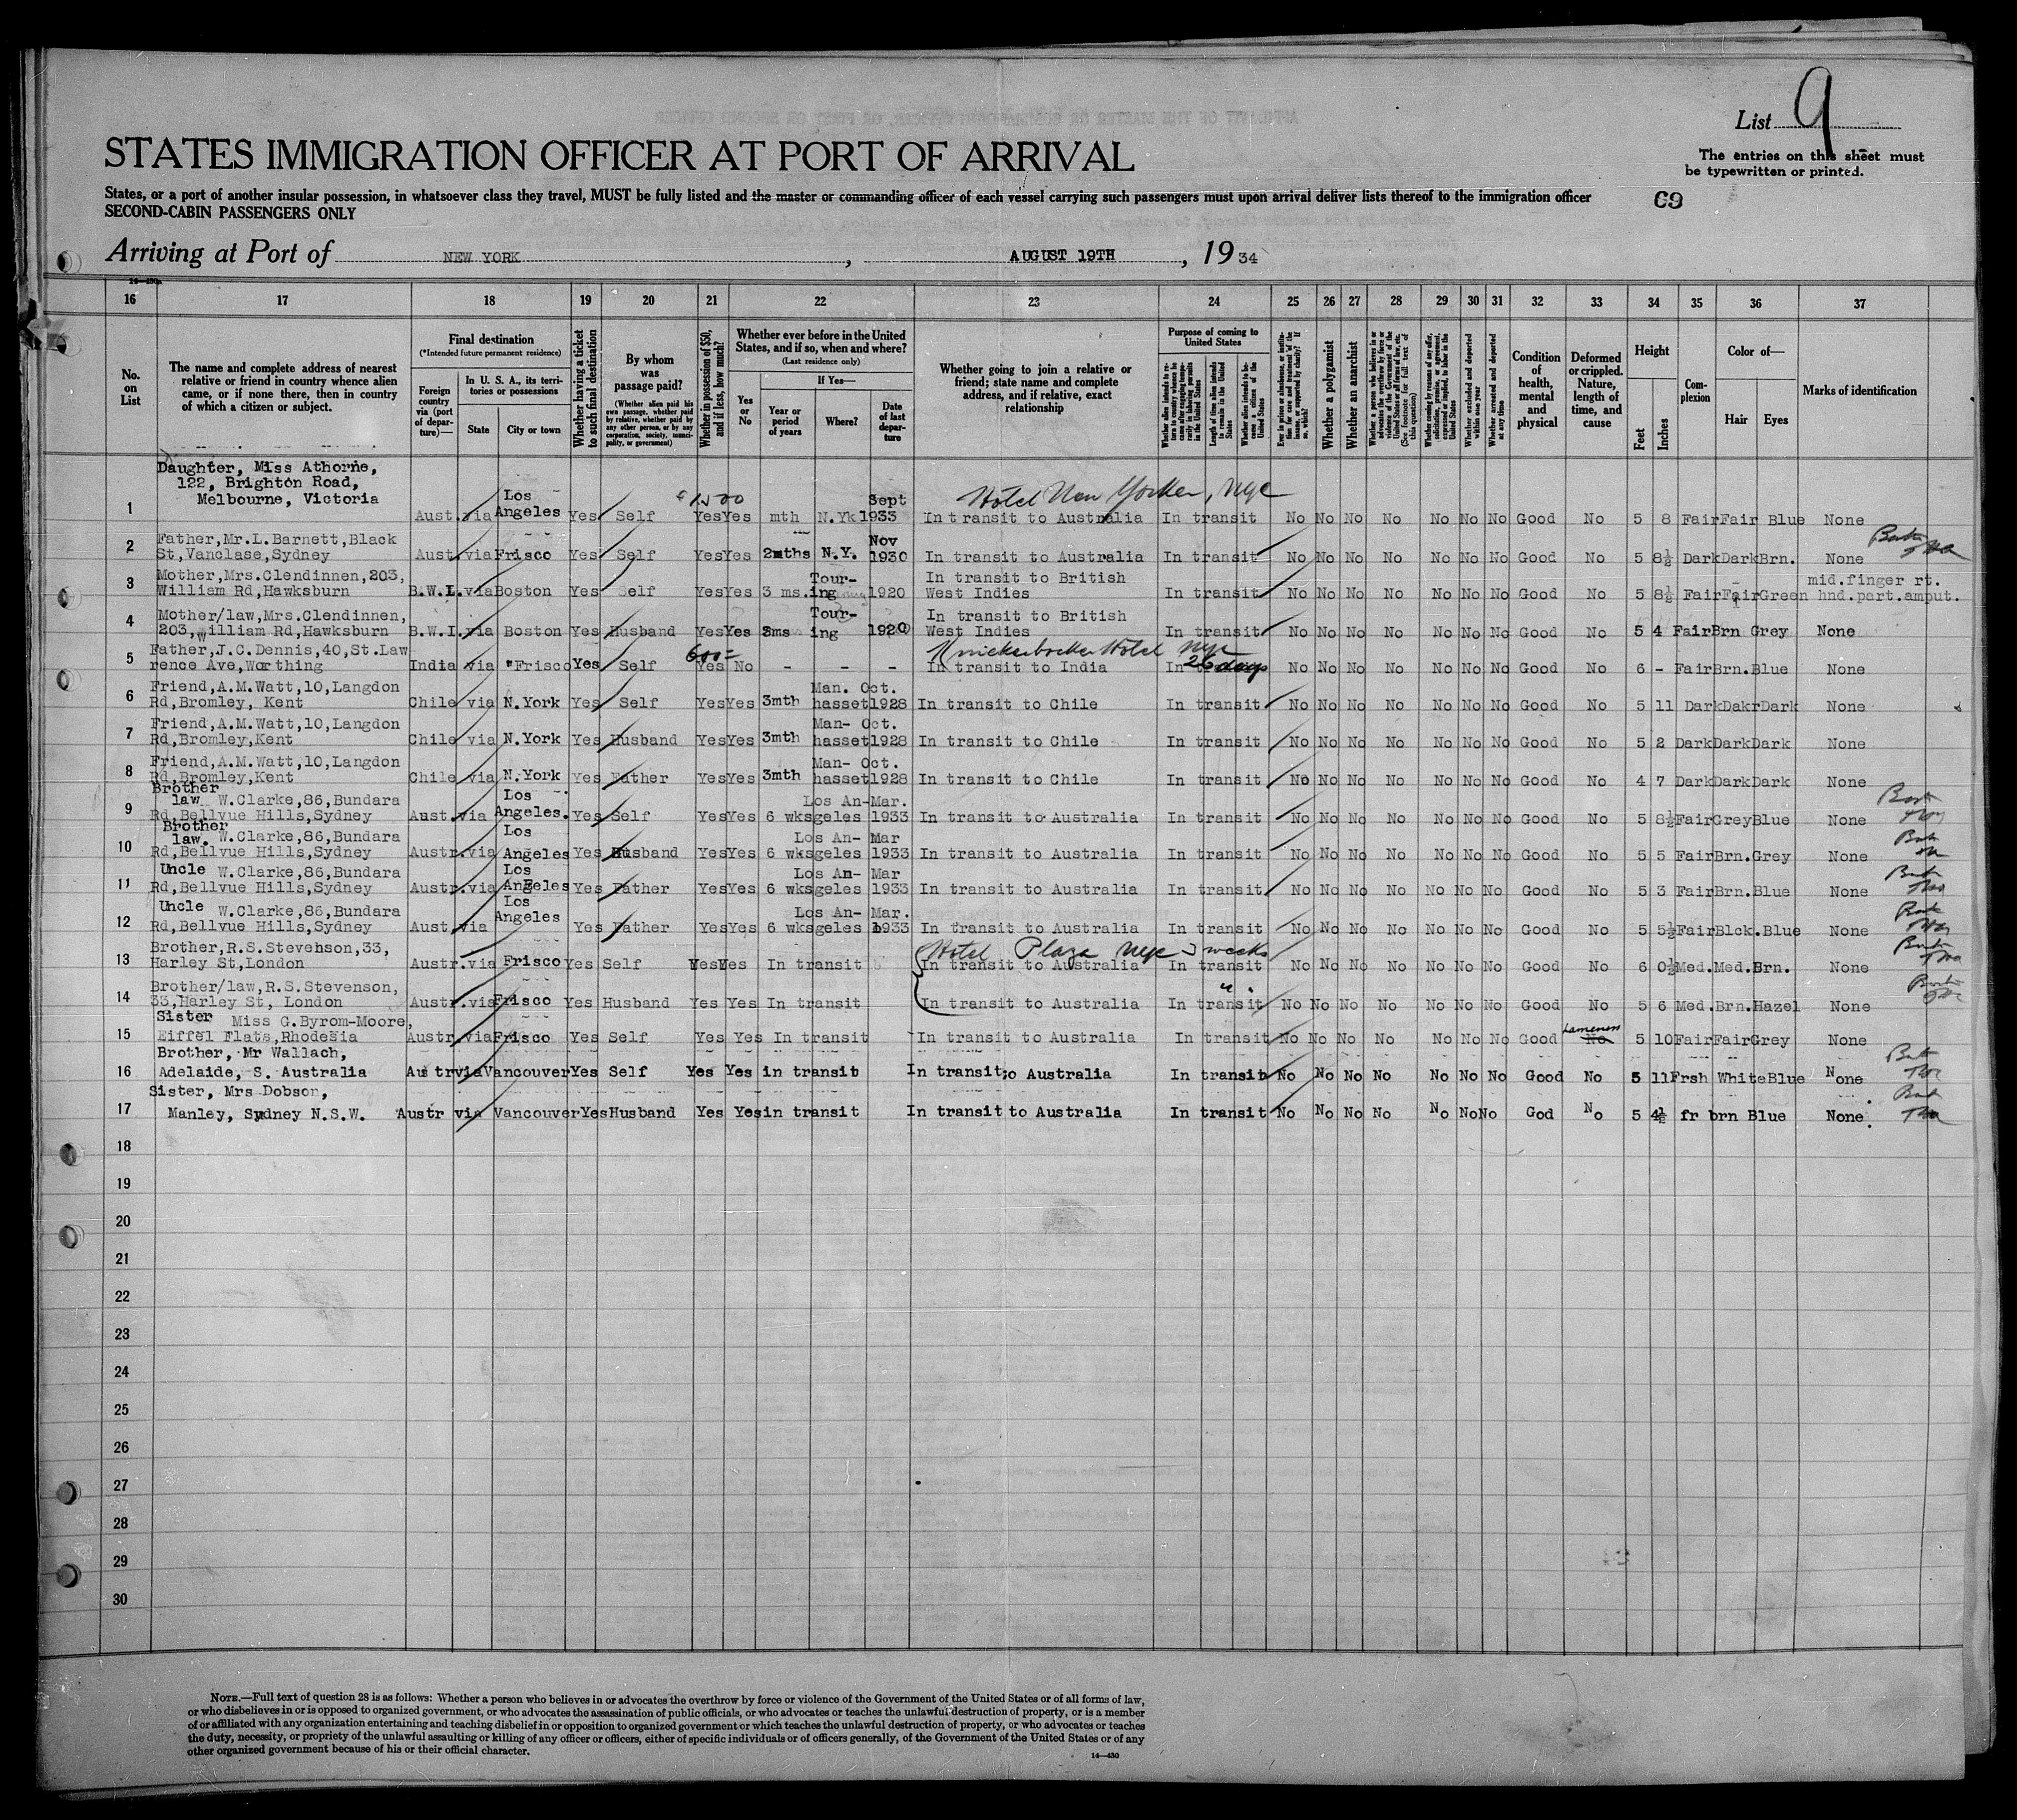 List 9
STATES IMMIGRATION OFFICER AT PORT OF ARRIVAL
The entries on this sheet must
be typewritten or printed.
States, or a port of another insular possession, in whatsoever class they travel, MUST be fully listed and the master or commanding officer of each vessel carrying such passengers must upon arrival deliver lists thereof to the immigration officer
69
SECOND-CABIN PASSENGERS ONLY
Arriving at Port of NEW YORK, AUGUST 19TH, 1934
16 17 18 19 20 21 22 23 24 25 26 27 28 29 30 31 32 33 34 35 36 37
No. on List
The name and complete address of nearest relative or friend in country whence alien came, or if none there, then in country of which a citizen or subject.
Final destination
(*Intended future permanent residence)
Foreign country via (port of departure)—
In U. S. A., its territories or possessions
State
City or town
Whether having a ticket to such final destination
By whom was passage paid?
(Whether alien paid his own passage, whether paid by relative, whether paid by any other person, or by any corporation, society, municipality, or government)
Whether in possession of $50, and if less, how much?
Whether ever before in the United States, and if so, when and where?
(Last residence only)
Yes or No
If Yes—
Year or period of years
Where?
Date of last departure
Whether going to join a relative or friend; state name and complete address, and if relative, exact relationship
Purpose of coming to United States
Length of time alien intends to remain in the United States
Whether alien intends to become a citizen of the United States
Whether a polygamist
Whether an anarchist
Whether excluded and deported within one year
Whether arrested and deported at any time
Condition of health, mental and physical
Deformed or crippled. Nature, length of time, and cause
Height
Feet
Inches
Complexion
Color of—
Hair
Eyes
Marks of identification
Daughter, Miss Athorne,
122, Brighton Road,
Melbourne, Victoria
1 Aust. via Los Angeles Yes Self $1500 Yes Yes mth N.Yk Sept 1933 Hotel New Yorker, NYC In transit to Australia In transit No No No No No No No Good No 5 8 Fair Fair Blue None
Father,Mr.L.Barnett,Black
2 St,Vanclase,Sydney Aust.via Frisco Yes Self Yes Yes 2mths N.Y. Nov 1930 In transit to Australia In transit No No No No No No No Good No 5 8½ Dark Dark Brn. None
Mother,Mrs.Clendinnen,203,
3 William Rd,Hawksburn B.W.I.via Boston Yes Self Yes Yes 3 ms. Touring 1920 In transit to British West Indies In transit No No No No No No No Good No 5 8½ Fair Fair Green mid.finger rt. hnd.part.amput.
Mother/law,Mrs.Clendinnen,
4 203,William Rd,Hawksburn B.W.I.via Boston Yes Husband Yes Yes 3ms Touring 1920 In transit to British West Indies In transit No No No No No No No Good No 5 4 Fair Brn Grey None
Father,J.C.Dennis,40,St.Law
5 rence Ave,Worthing India via "Frisco Yes Self 600= Yes No - - - Knickerbocker Hotel NYC In transit to India In 26 days No No No No No No No Good No 6 - Fair Brn. Blue None
Friend,A.M.Watt,10,Langdon
6 Rd,Bromley, Kent Chile via N.York Yes Self Yes Yes 3mth Man. hasset Oct. 1928 In transit to Chile In transit No No No No No No No Good No 5 11 Dark Dakr Dark None
Friend,A.M.Watt,10,Langdon
7 Rd,Bromley,Kent Chile via N.York Yes Husband Yes Yes 3mth Man- hasset Oct. 1928 In transit to Chile In transit No No No No No No No Good No 5 2 Dark Dark Dark None
Friend,A.M.Watt,10,Langdon
8 Rd,Bromley,Kent Chile via N.York Yes Father Yes Yes 3mth Man- hasset Oct. 1928 In transit to Chile In transit No No No No No No No Good No 4 7 Dark Dark Dark None
Brother
law W.Clarke,86,Bundara
9 Rd,Bellvue Hills,Sydney Aust.via Los Angeles. Yes Self Yes Yes 6 wks Los An- geles Mar. 1933 In transit to Australia In transit No No No No No No No Good No 5 8½ Fair Grey Blue None
Brother
law. W.Clarke,86,Bundara
10 Rd,Bellvue Hills,Sydney Austr.via Los Angeles Yes Husband Yes Yes 6 wks Los An- geles Mar 1933 In transit to Australia In transit No No No No No No No Good No 5 5 Fair Brn. Grey None
Uncle W.Clarke,86,Bundara
11 Rd,Bellvue Hills,Sydney Austr.via Los Angeles Yes Father Yes Yes 6 wks Los An- geles Mar 1933 In transit to Australia In transit No No No No No No No Good No 5 3 Fair Brn. Blue None
Uncle W.Clarke,86,Bundara
12 Rd,Bellvue Hills,Sydney Aust.via Los Angeles Yes Father Yes Yes 6 wks Los An- geles Mar. 1933 In transit to Australia In transit No No No No No No No Good No 5 5½ Fair Blck. Blue None
Brother,R.S.Stevehson,33,
13 Harley St,London Austr.via Frisco Yes Self Yes Yes In transit Hotel Plaza NYC 3 weeks In transit to Australia In transit No No No No No No No Good No 6 0½ Med. Med. Brn. None
Brother/law,R.S.Stevenson,
14 33,Harley St, London Austr.via Frisco Yes Husband Yes Yes In transit In transit to Australia In transit No No No No No No No Good No 5 6 Med. Brn. Hazel None
Sister Miss G.Byrom-Moore,
15 Eiffel Flats,Rhodesia Austr.via Frisco Yes Self Yes Yes In transit In transit to Australia In transit No No No No No No No Good No Lameness 5 10 Fair Fair Grey None
Brother, Mr Wallach,
16 Adelaide, S. Australia Austr via Vancouver Yes Self Yes Yes in transit In transit to Australia In transit No No No No No No No Good No 5 11 Frsh White Blue None
Sister, Mrs Dobson,
17 Manley, Sydney N.S.W. Austr via Vancouver Yes Husband Yes Yes in transit In transit to Australia In transit No No No No No No No God No 5 4½ fr brn Blue None.
18
19
20
21
22
23
24
25
26
27
28
29
30
NOTE.—Full text of question 28 is as follows: Whether a person who believes in or advocates the overthrow by force or violence of the Government of the United States or of all forms of law,
or who disbelieves in or is opposed to organized government, or who advocates the assassination of public officials, or who advocates or teaches the unlawful destruction of property, or is a member
of or affiliated with any organization entertaining and teaching disbelief in or opposition to organized government or which teaches the unlawful destruction of property, or who advocates or teaches
the duty, necessity, or propriety of the unlawful assaulting or killing of any officer or officers, either of specific individuals or of officers generally, of the Government of the United States or of any
other organized government because of his or their official character.
14—430